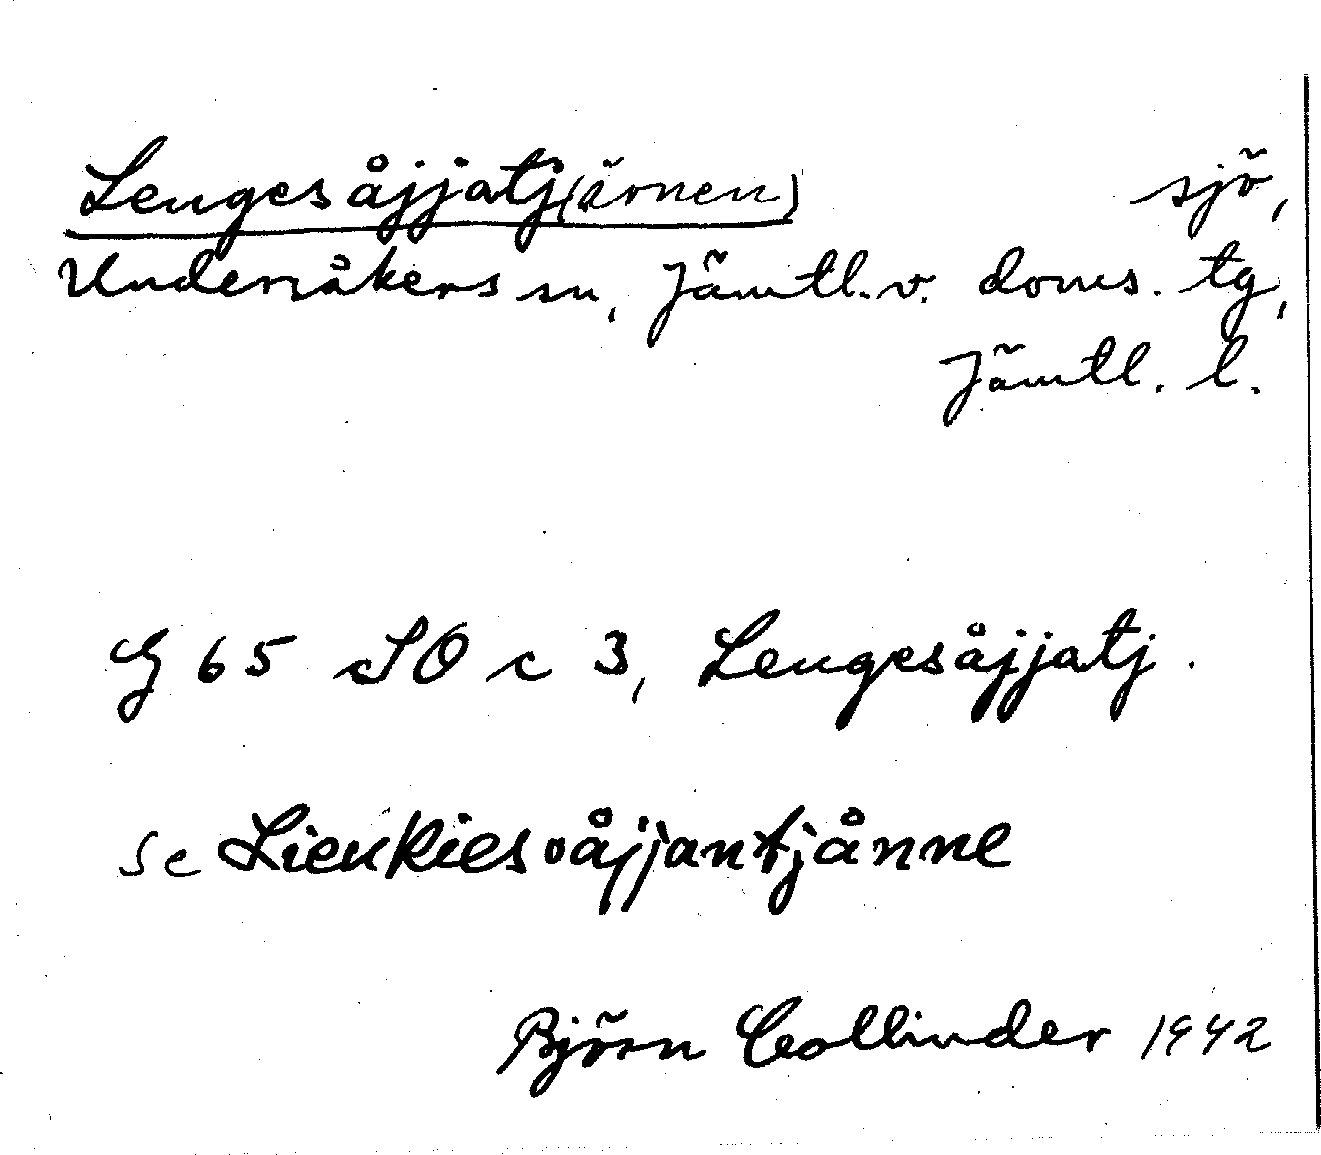 Lengesåjjatj(ärnen) sjö,
Undersåkers sn, Jämtl. v. doms. tg,
Jämtl. l.
G 65 SO c 3, Lengesåjjatj.
se Lienkiesåjjantjånne
Björn Collinder 1942